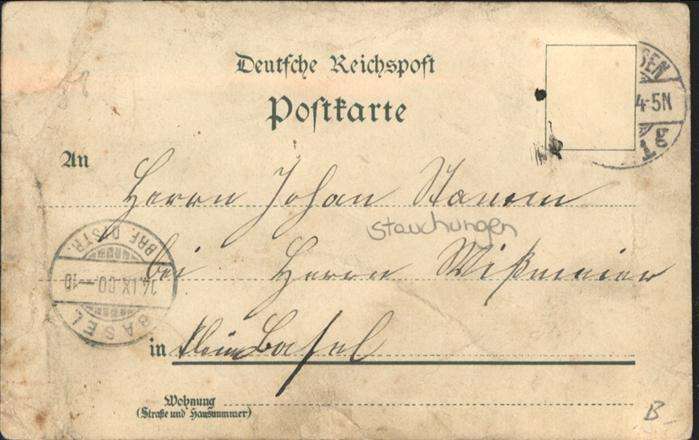 Deutsche Reichspost
Postkarte
SEN
4-5N
1g
An
Herrn Johan Stamm
Stauchungen
bei Herrn Wißmeier
BRF. DISTR.
14.IX.00—10
BASEL
in Klein Basel
Wohnung
(Straße und Hausnummer)
B